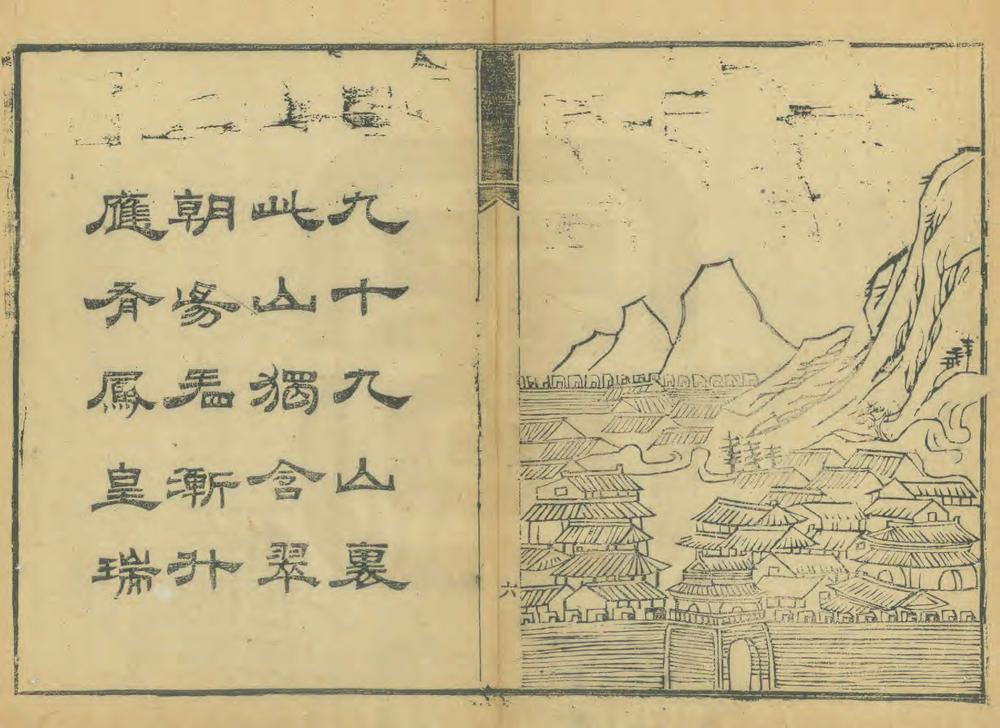 六
九十九山裏
此山獨含翠
朝昜看漸升
應有鳳皇瑞